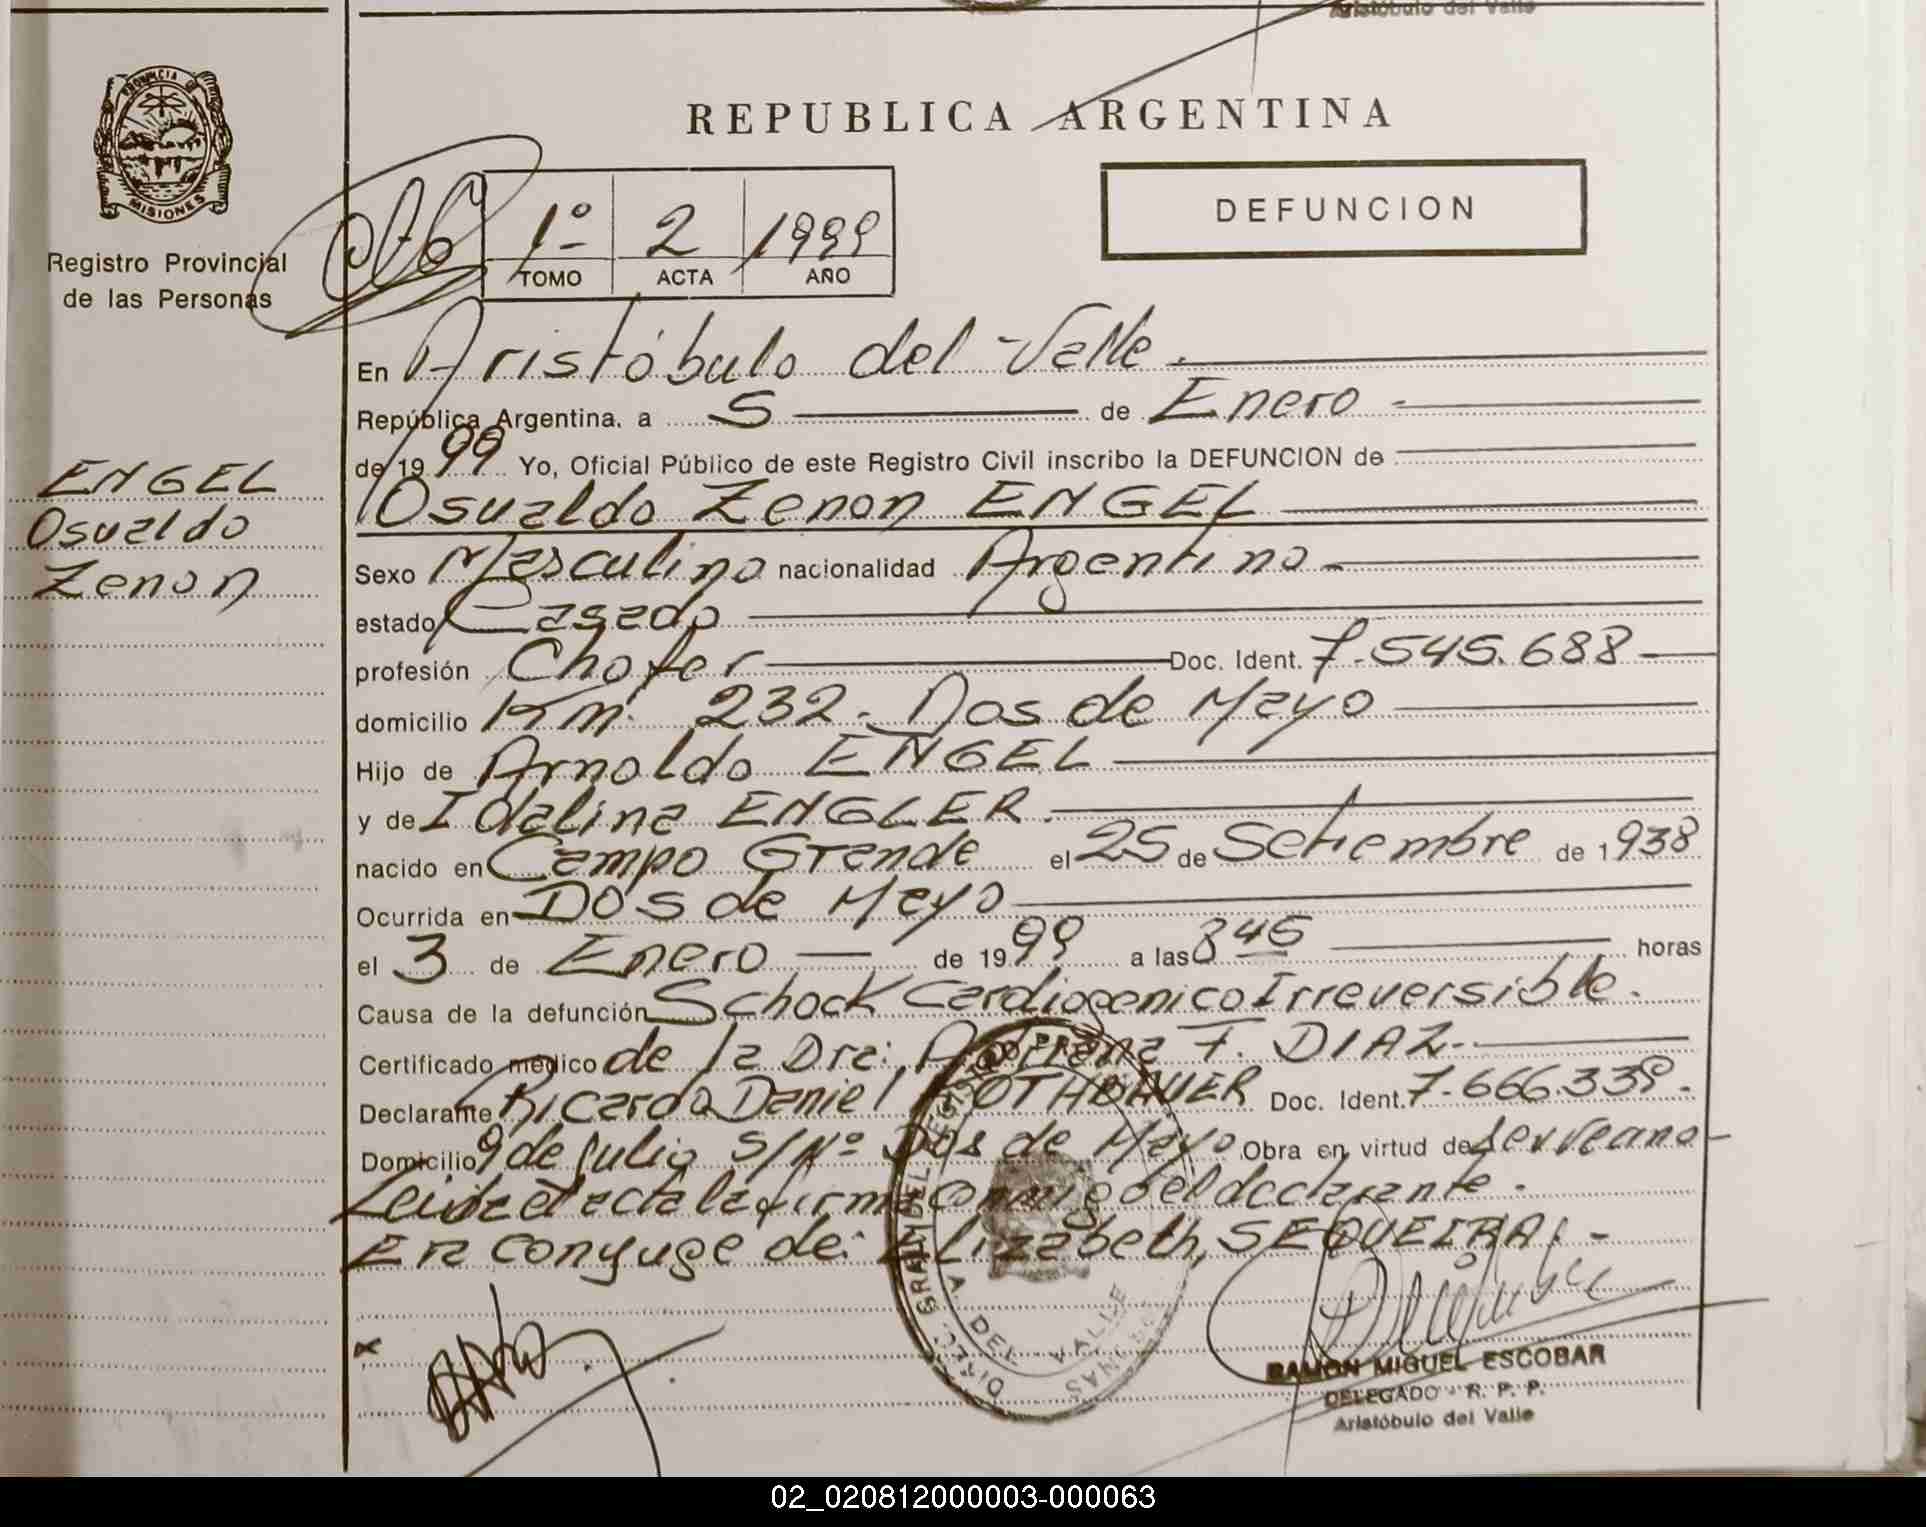 Aristóbulo del Valle
PROVINCIA DE
MISIONES
Registro Provincial
de las Personas
ENGEL
Osvaldo
Zenon
REPUBLICA ARGENTINA
1º 2 1999
TOMO ACTA AÑO
DEFUNCION
En Aristóbulo del Valle.
República Argentina, a 5 de Enero -
de 19 99 Yo, Oficial Público de este Registro Civil inscribo la DEFUNCION de
Osvaldo Zenon ENGEL
Sexo Masculino nacionalidad Argentino -
estado Casado
profesión Chofer Doc. Ident. 7.545.688 -
domicilio Km. 232. Dos de Mayo
Hijo de Arnoldo ENGEL
y de Idalina ENGLER.
nacido en Campo Grande el 25 de Setiembre de 1938
Ocurrida en Dos de Mayo
el 3 de Enero - de 19 99 a las 8 45 horas
Causa de la defunción Schock Cardiogenico Irreversible.
Certificado médico de la Dra: Adriana F. DIAZ.-
Declarante Ricardo Daniel ROTHBAUER Doc. Ident. 7.666.339.
Domicilio 9 de Julio S/Nº Dos de Mayo Obra en virtud de
Leida el acta la firma conmigo el declarante.
Era conyuge de: Elizabeth, SEQUEIRA. -
x
DIREC. GRAL. DEL REGISTRO PROV.
A. DEL VALLE
RAMON MIGUEL ESCOBAR
DELEGADO - R. P. P.
Aristóbulo del Valle
02_020812000003-000063